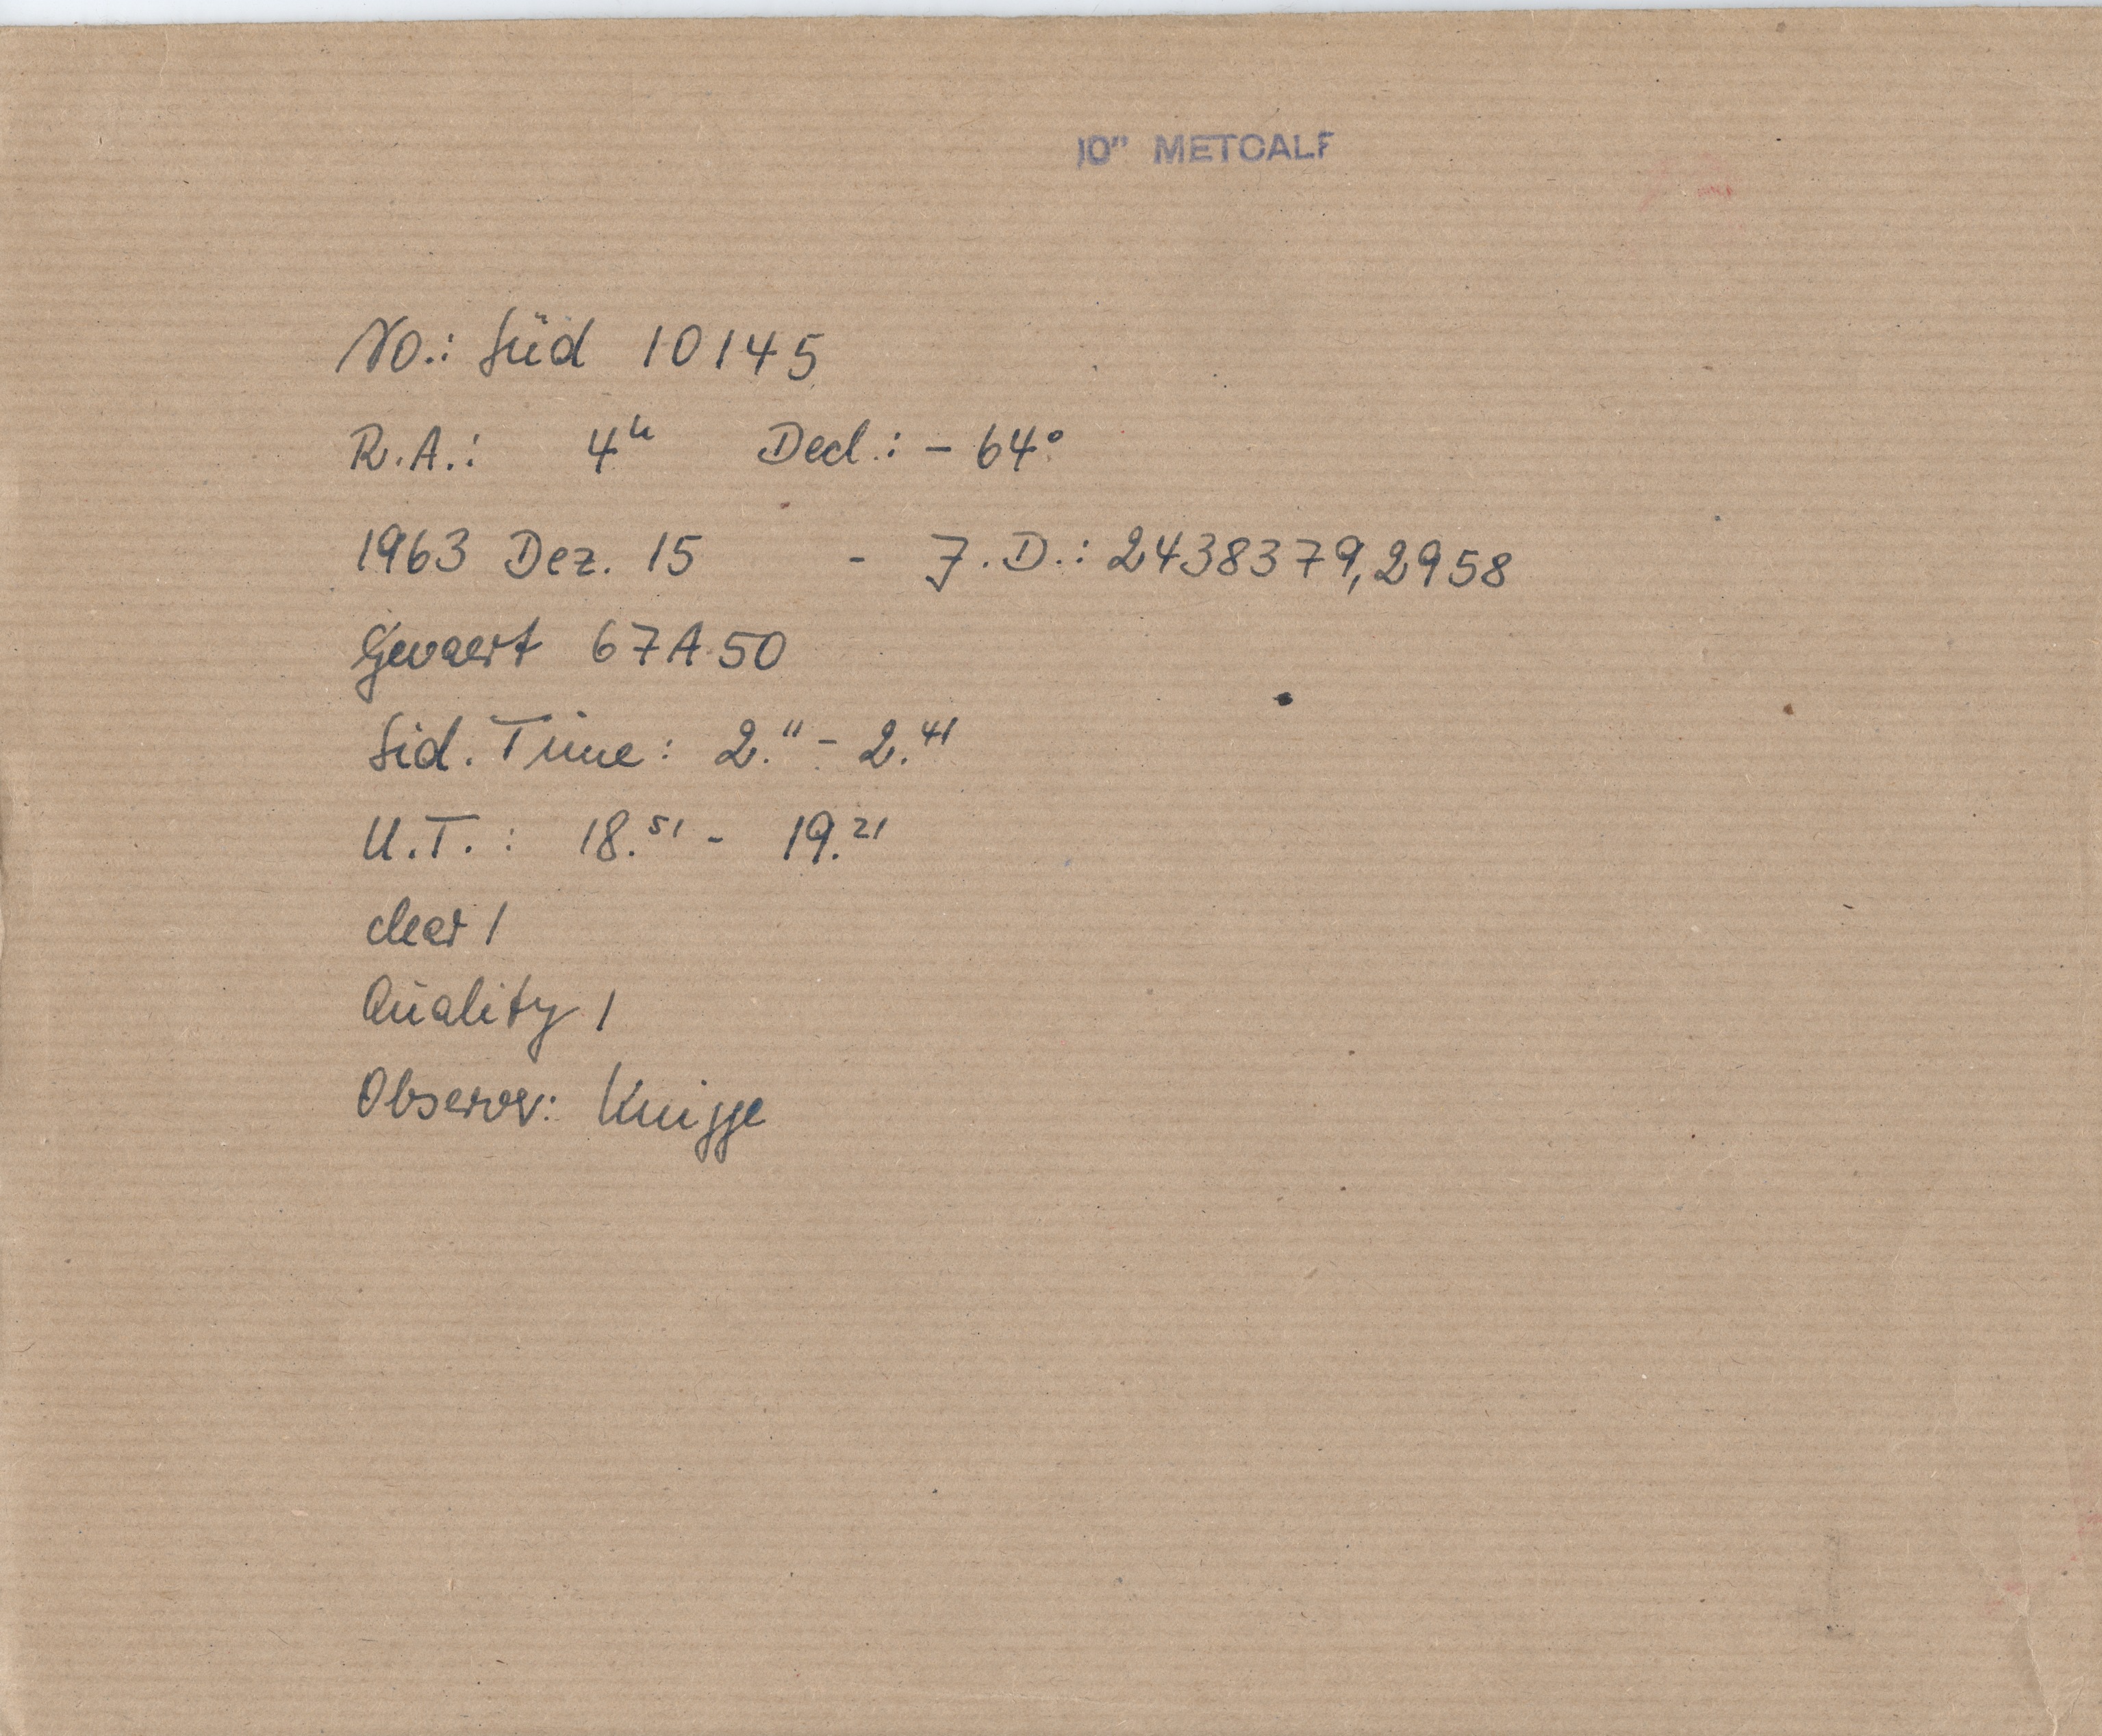 10" METCALF
No.: Süd 10145
R.A.: 4ʰ Decl.: - 64°
1963 Dez. 15 - J.D.: 2438379,2958
Gevaert 67A50
Sid. Time: 2.¹¹ - 2.⁴¹
U.T.: 18.⁵¹ - 19.²¹
clear 1
Quality 1
Observer: Knigge